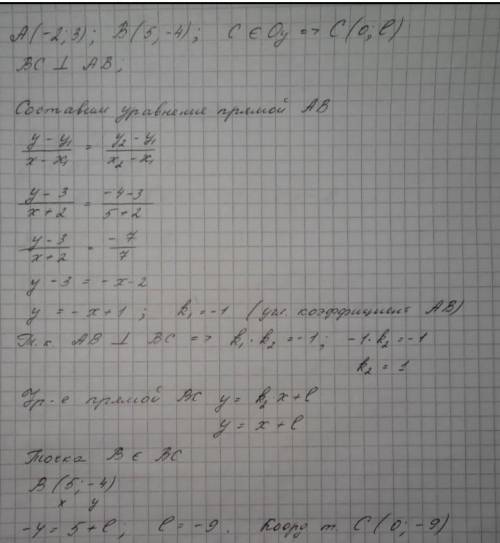 A(-2; 3); B(5; -4); C ∈ Oy => C(0; l)
BC ⊥ AB;
Составим уравнение прямой AB
(y - y₁)/(x - x₁) = (y₂ - y₁)/(x₂ - x₁)
(y - 3)/(x + 2) = (-4 - 3)/(5 + 2)
(y - 3)/(x + 2) = -7/7
y - 3 = -x - 2
y = -x + 1; k₁ = -1 (угл. коэффициент AB)
Т.к AB ⊥ BC => k₁ · k₂ = -1; -1 · k₂ = -1
k₂ = 1
Ур-е прямой BC y = k₂ · x + l
y = x + l
Точка B ∈ BC
B(5; -4)
x y
-4 = 5 + l; l = -9. Коорд т. C(0; -9)